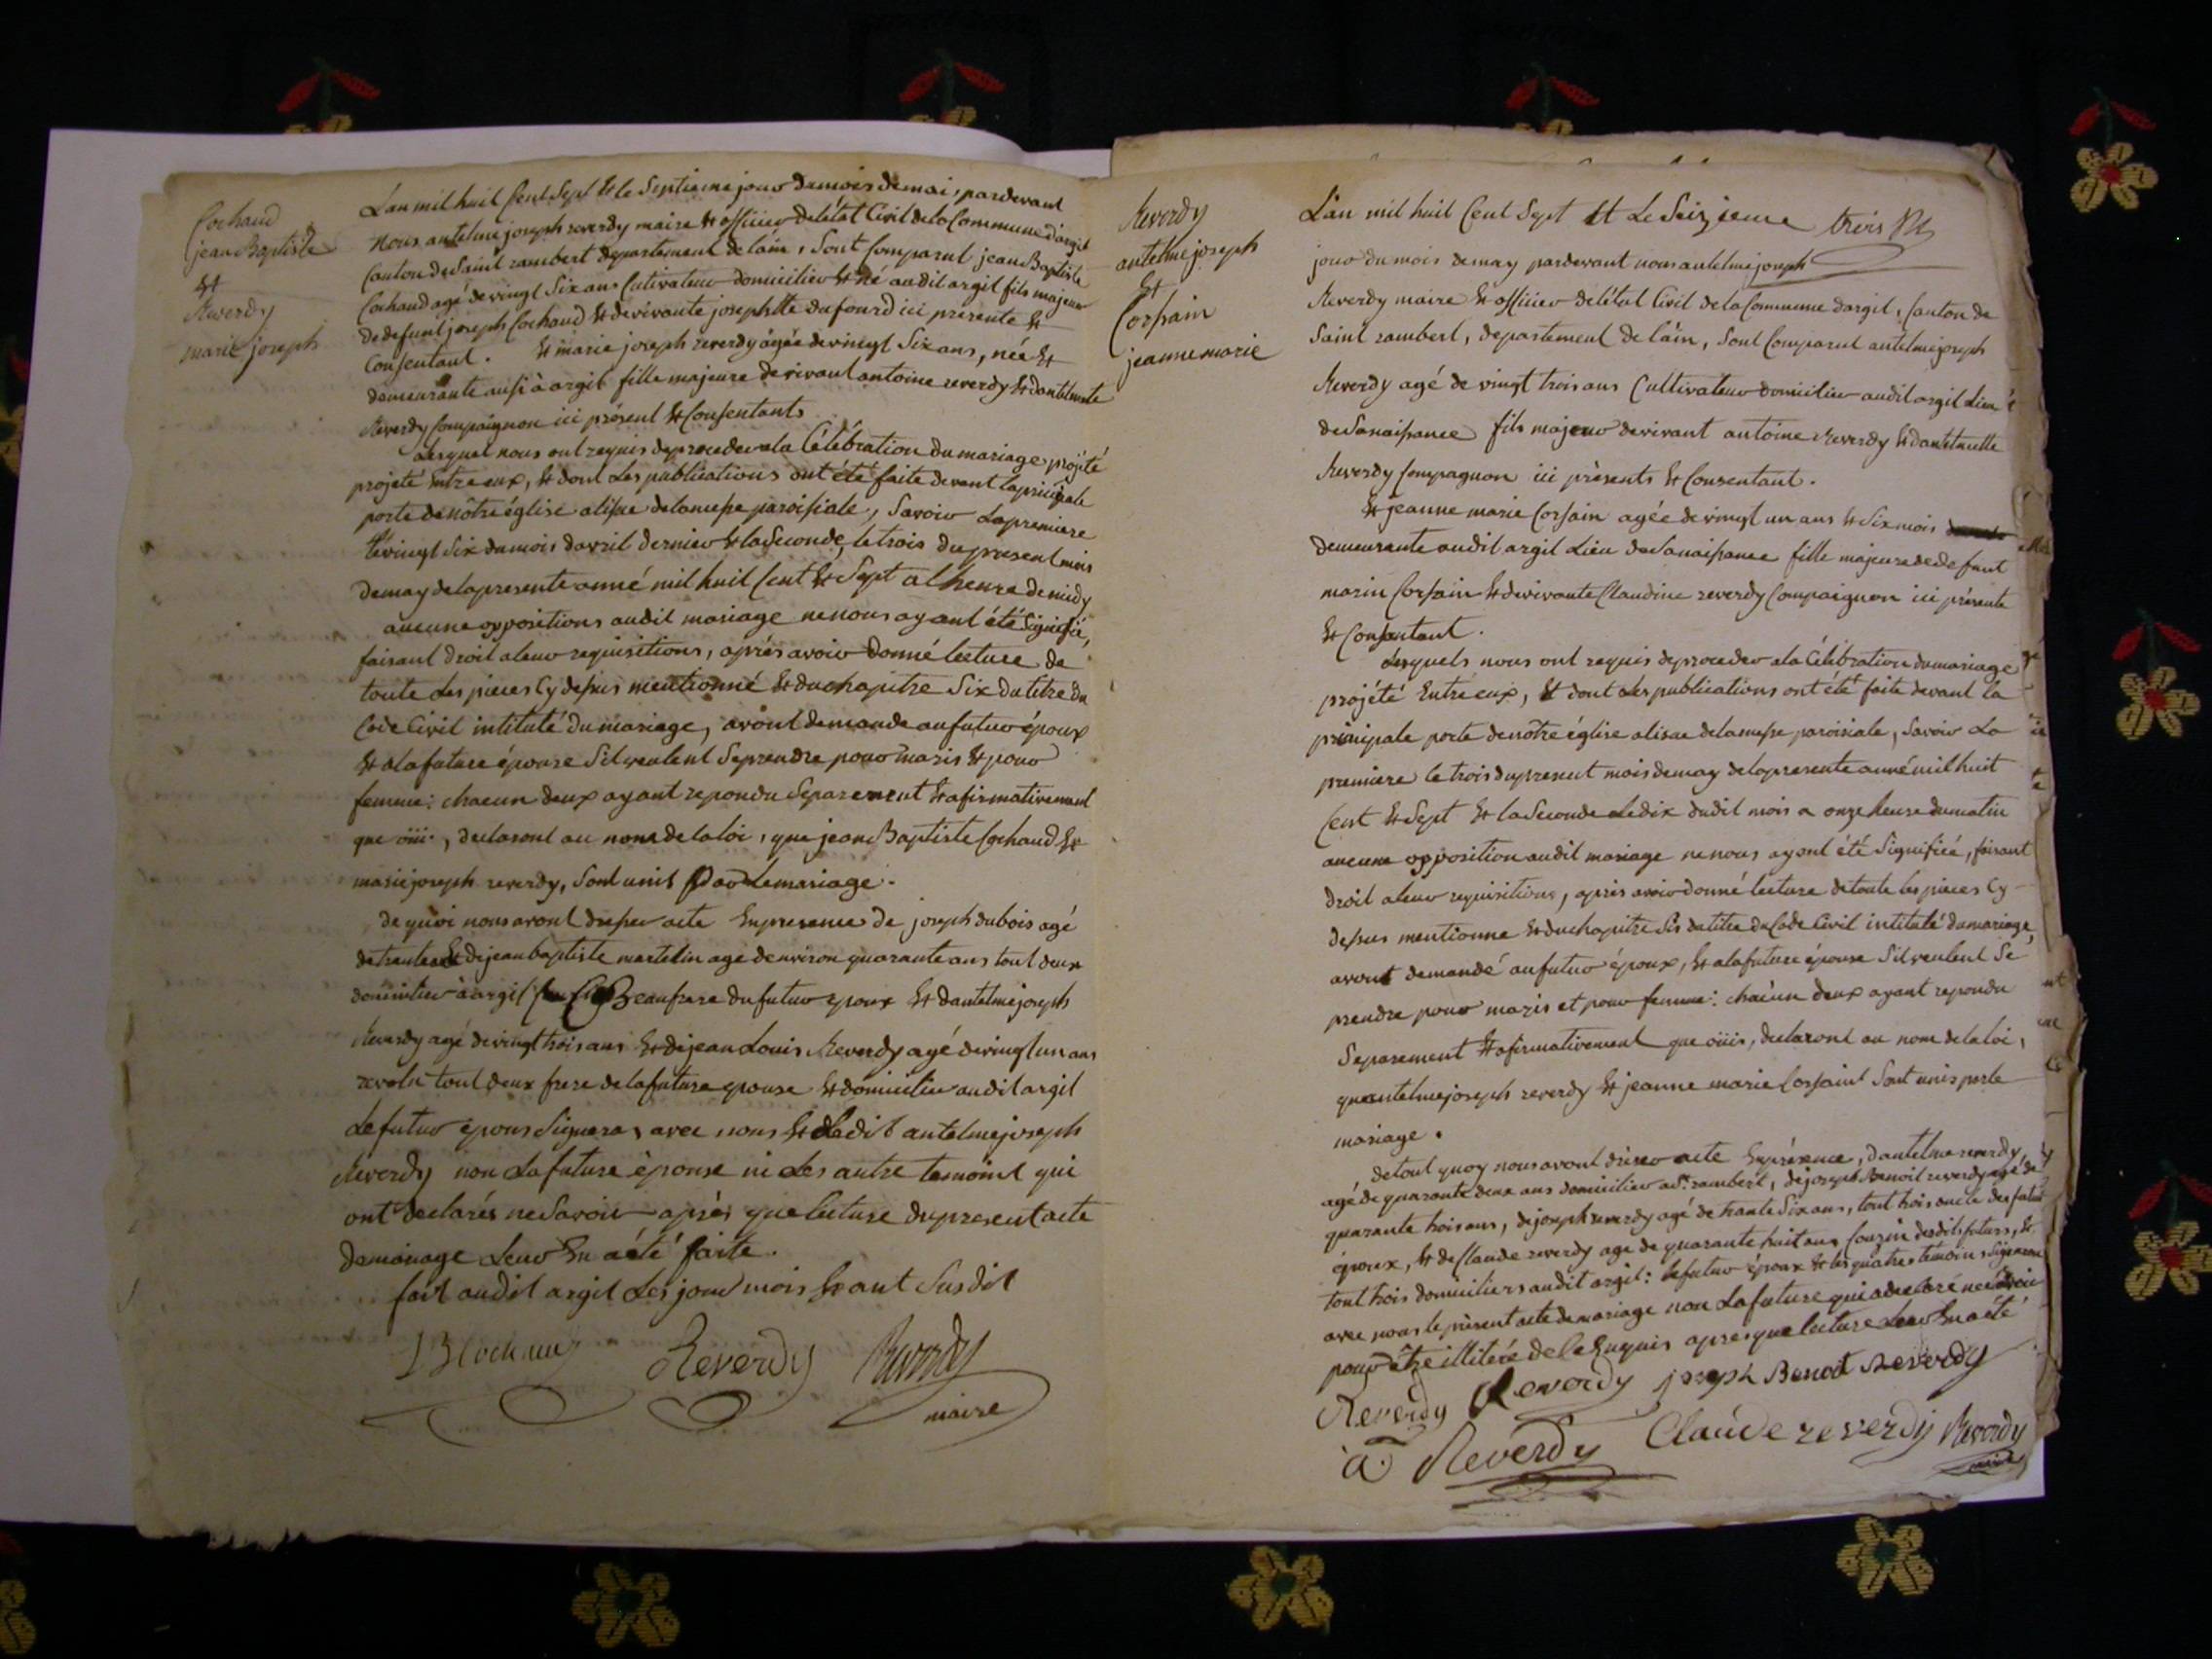 Cochaud
jean Baptiste
Et
Reverdy
marie joseph
L'an mil huit Cent Sept Et le Septieme jour du mois de mai, pardevant
Nous antelme joseph reverdy maire Et officier de létat Civil de la Commune d'argit
Canton de Saint rambert departement de láin, Sont Comparut jean Baptiste
Cochaud agé de vingt Six ans Cutivateur domicilier Et né audit argit fils majeur
de defunt joseph Cochaud Et de vivante josephtte dufourd ici présente Et
Consentant. Et marie joseph reverdy âgée de vingt Six ans, née Et
demeurante ausi à argit fille majeure de vivant antoine reverdy Et dantelmette
Reverdy Compaignon ici présent Et Consentants
Lesquel nous ont requis de proceder a la Célébration du mariage projeté
projeté Entre eux, Et dont Les publications ont été faite devant la principale
porte de nôtre église a lisue de la messe paroissiale, Savoir La premiere
le vingt Six du mois davril dernier Et la Seconde, le trois du present mois
de may de la presente anné mil huit Cent Et Sept a lheure de midy
aucune oppositions audit mariage ne nous ayant été Signifié,
faisant droit a leur requisitions, aprés avoir donné lecture de
toute Les pieces Cy dessus mentionné Et du chapitre Six du titre du
Code Civil intitulé du mariage, avont demande au futur époux
Et a la future épouse Sil veulent Se prendre pour maris Et pour
femme: chacun deux ayant repondu Separement Et afirmativement
que oüi, declaront au nom de la loi, que jean Baptiste Cochaud Et
marie joseph reverdy, Sont unis Par Le mariage.
de quoi nous avont dresser acte En presence de joseph dubois agé
de trente Et de jean baptiste martelin age denviron quarante ans tout deux
domicilier à argit Beaufrere du futur epoux Et dantelme joseph
Reverdy agé de vingt trois ans Et de jean Louis Reverdy agé de vingt un ans
revolu tout deux frere de la future epouse Et domicilier audit argit
Le futur épous Signera, avec nous Et Ledit antelme joseph
Reverdy non La future épouse ni Les autre temoint qui
ont declarés ne Savoir aprés que lecture du present acte
de mariage Leur En a été faite.
fait audit argit Les jour mois Et ant Susdit
J B Cochaud Reverdy Reverdy
maire
Reverdy
antelme joseph
Et
Corsain
jeanne marie
L'an mil huit Cent Sept Et Le Seizieme trois
jour du mois de may pardevant nous antelme joseph
Reverdy maire Et officier de létat Civil de la Commune dargit, Canton de
Saint rambert, departement de láin, Sont Comparut antelme joseph
Reverdy agé de vingt trois ans Cultivateur domicilier audit argit Lieu
de Sa naissance fils majeur de vivant antoine Reverdy Et dantelmette
Reverdy Compagnon ici présents Et Consentant.
Et jeanne marie Corsain agée de vingt un ans Et Six mois
demeurante audit argit Lieu de Sa naissance fille majeure de defunt
marin Corsain Et de vivante Claudine reverdy Compaignon ici présente
Et Consentant.
Lesquels nous ont requis de proceder a la Célébration du mariage
projété Entre eux, Et dont Les publications ont été faite devant la
principale porte de nôtre église a lisue de la messe paroisiale, Savoir La
premiere le trois du present mois de may de la presente anné mil huit
Cent Et Sept Et la Seconde Le dix dudit mois a onze heure du matin
aucune opposition audit mariage ne nous ayont été Signifiée, faisant
droit a leur requisitions, aprés avoir donné lecture de toute les pieces Cy
dessus mentionne Et du chapitre Six du titre du Code Civil intitulé du mariage,
avont demandé au futur époux, Et a la future épouse Sil veulent Se
prendre pour maris et pour femme: chacun deux ayant repondu
Separement Et afirmativement que oüis, declaront au nom de la loi,
que antelme joseph reverdy Et jeanne marie Corsaint Sont unis par le
mariage.
de tout quoy nous avont drésser acte En présence, dantelme reverdy
agé de quarante deux ans domicilier a St. rambert, de joseph Benoit reverdy agé de
quarante trois ans, de joseph reverdy agé de trante Six ans, tout trois oncle des futur
époux, Et de Claude reverdy age de quarante huit ans Cousin desdits futurs, Et
tout trois domiciliers audit argit: le futur époux Et les quatre temoin, Signeront
avec nous le présent acte de mariage non La future qui a declaré ne Savoir
pour être illitéré de le Enquis apres que lecture Leur En a été
Reverdy Reverdy joseph Benoit Reverdy
à Reverdy Claude reverdy Reverdy
maire